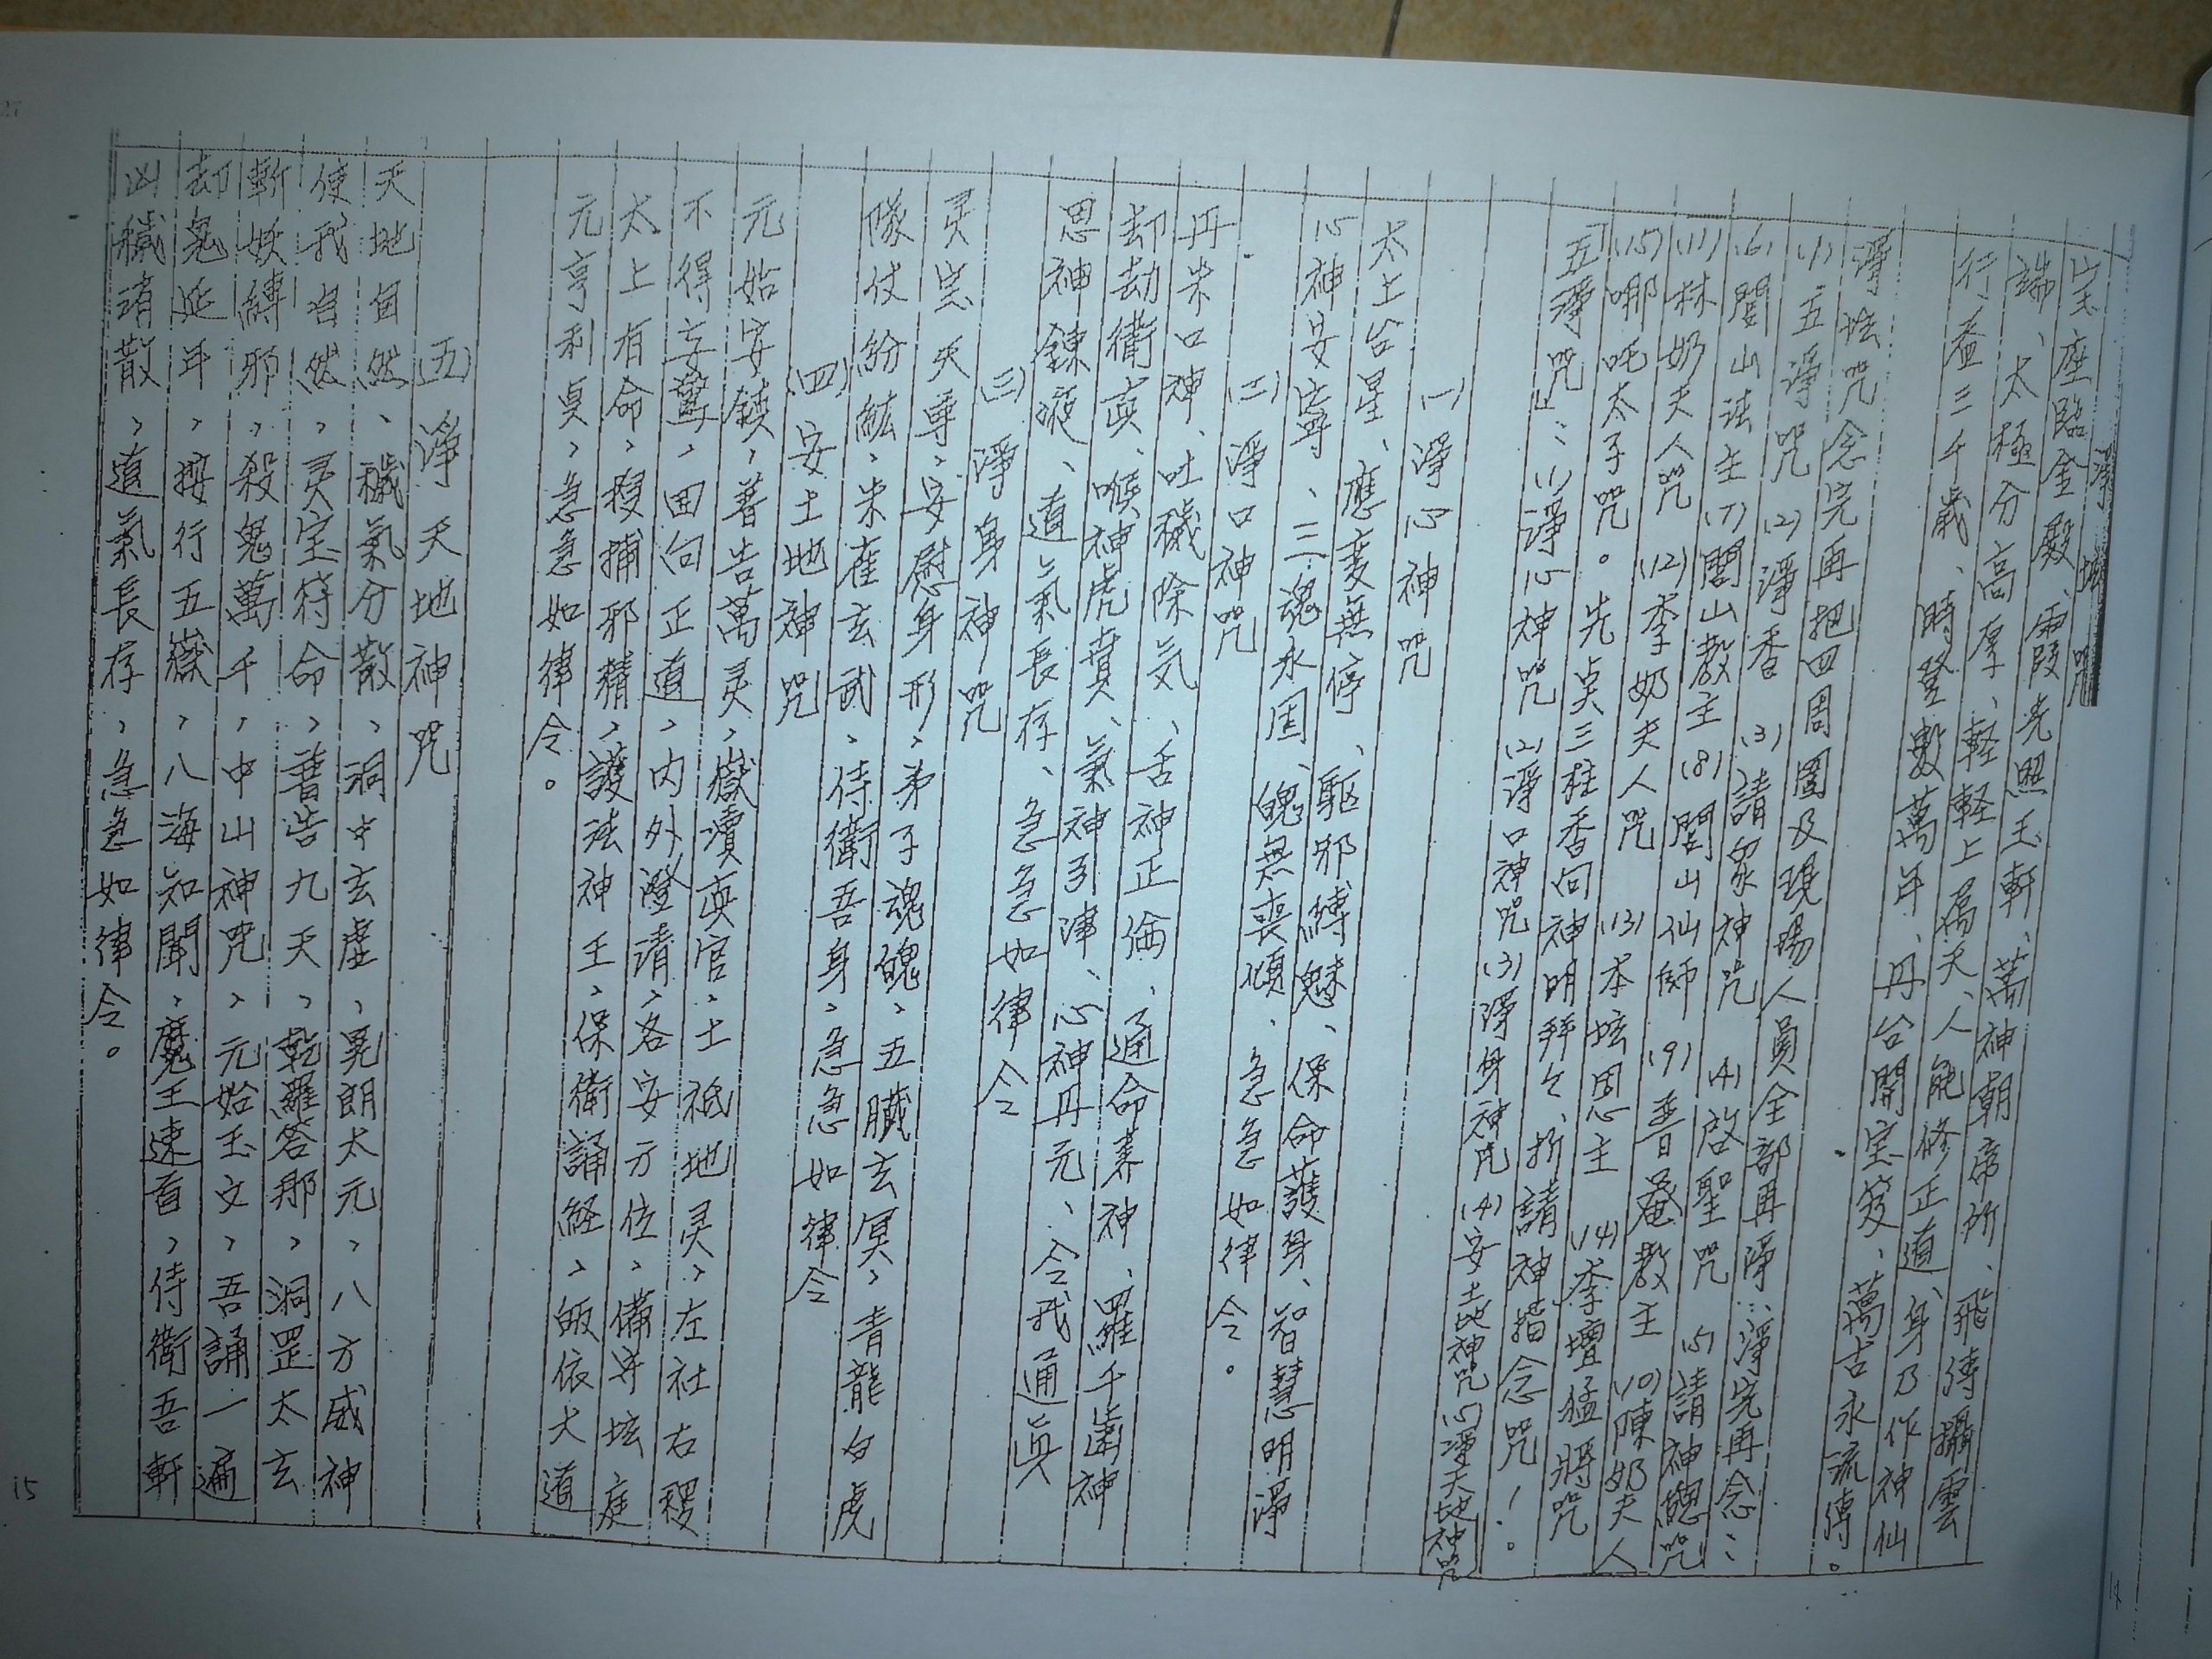 淨壇咒
宝座臨金殿、霞光照玉軒、萬神朝帝所、飛傳攝雲
端、太極分高厚、軽軽上屬天、人能修正道、身乃作神仙
行盈三千歲、時登數萬年、丹台開宝笈、萬古永流傳。
淨坛咒念完再把四周圍及現場人員全部再淨:淨完再念:
(1)五淨咒 (2)淨香 (3)請眾神咒 (4)啓聖咒 (5)請神魄咒
(6)閭山法主 (7)閭山教主 (8)閭山仙師 (9)普庵教主 (10)陳奶夫人
(11)林奶夫人咒 (12)李奶夫人咒 (13)本坛恩主 (14)李壇猛將咒
(15)哪吒太子咒。先点三柱香向神明拜々、折請神指念咒!。
五淨咒」:(1)淨心神咒 (2)淨口神咒 (3)淨身神咒 (4)安土地神咒 (5)淨天地神咒
(一)淨心神咒
太上台星、應変無停、駆邪縛魅、保命護身、智慧明淨
心神安寧、三魂永固、魄無喪傾、急急如律令。
(二)淨口神咒
丹朱口神、吐穢除気、舌神正倫、通命養神、羅千齒神
却劫衛真、喉神虎賁、氣神引津、心神丹元、令我通真
思神錬液、道氣長存、急急如律令
(三)淨身神咒
灵宝天尊、安慰身形、弟子魂魄、五臟玄冥、青龍白虎
隊仗紛紜、朱雀玄武、侍衛吾身、急急如律令
(四)安土地神咒
元始安鎮、普告萬灵、嶽瀆真官、土祇地灵、左社右稷
不得妄驚、回向正道、内外澄清、各安方位、備守坛庭
太上有命、搜捕邪精、護法神王、保衛誦経、皈依大道
元亨利貞、急急如律令。
(五)淨天地神咒
天地自然、穢氣分散、洞中玄虛、晃朗太元、八方威神
使我自然、灵宝符命、普告九天、乾羅答那、洞罡太玄
斬妖縛邪、殺鬼萬千、中山神咒、元始玉文、吾誦一遍
却鬼延年、按行五嶽、八海知聞、魔王速首、侍衛吾軒
凶穢消散、道氣長存、急急如律令。
15
14
27